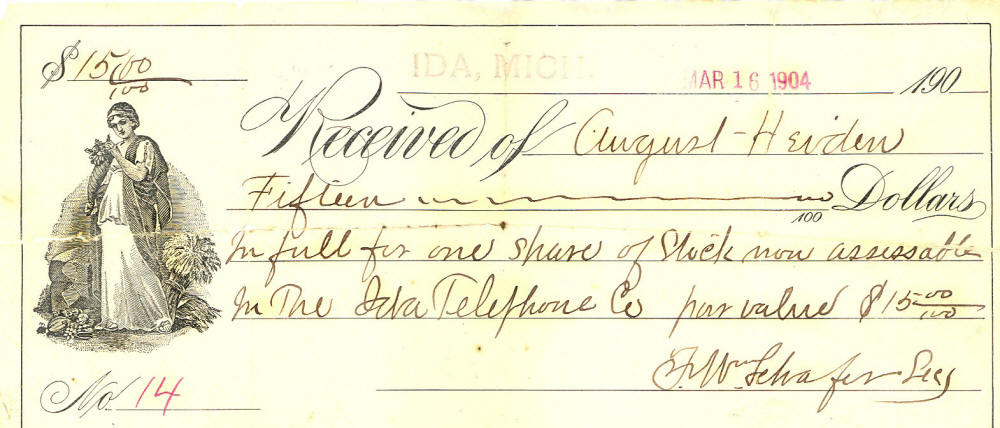 $15 00/100
IDA, MICH. MAR 16 1904 190
Received of August Heiden
Fifteen 00/100 Dollars
In full for one share of Stock non assessable
In The Ida Telephone Co par value $15 00/100
F. Wm Schafer Secy
No. 14